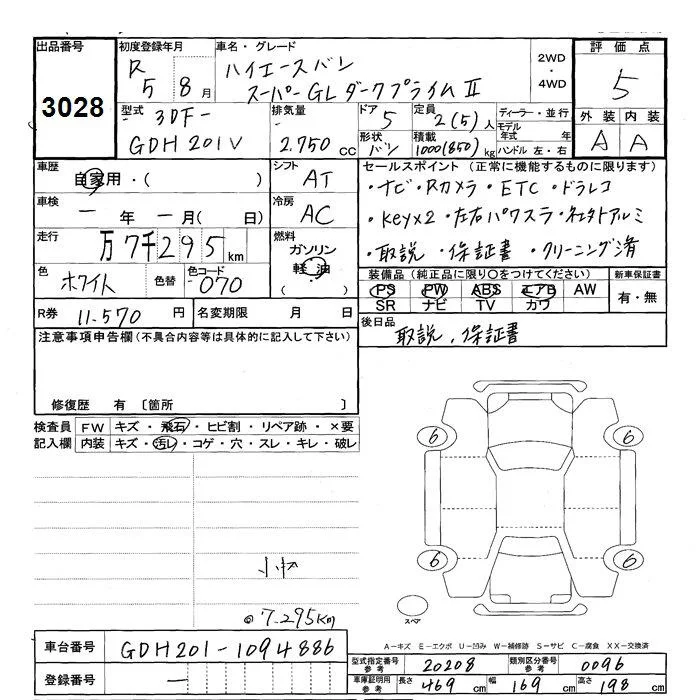 出品番号 初度登録年月 車名・グレード 評価点
3028 R 5 8月 ハイエースバン 2WD・4WD 5
スーパーGLダークプライムⅡ
外装 内装
A A
型式 3DF-GDH201V 排気量 2.750 cc ドア 5 定員 2(5)人 ディーラー・並行
モデル年式 年
形状 バン 積載 1000(850)kg ハンドル 左・右
車歴 自家用・( ) シフト AT セールスポイント(正常に機能するものに限ります)
・ナビ・Rカメラ・ETC・ドラレコ
車検 一年一月( 日) 冷房 AC ・Keyx2・左右パワスラ・社外アルミ
走行 万7千295km 燃料 ガソリン 軽油 ( ) ・取説・保証書・クリーニング済
色 ホワイト 色替 色コード 070
装備品(純正品に限り○をつけてください) 新車保証書
PS PW ABS エアB AW 有・無
SR ナビ TV カワ
R券 11.570 円 名変期限 月 日
後日品 取説、保証書
注意事項申告欄(不具合内容等は具体的に記入して下さい)
修復歴 有 〔箇所 〕
検査員 FW キズ・飛石・ヒビ割・リペア跡・×要
記入欄 内装 キズ・汚レ・コゲ・穴・スレ・キレ・破レ
6 6
6 6
◎7.295Km
スペア
A-キズ E-エクボ U-凹み W-補修跡 S-サビ C-腐食 XX-交換済
車台番号 GDH201-1094886
登録番号 一
型式指定番号 参考 20208 類別区分番号 参考 0096
車庫証明用 参考 長さ 469 cm 幅 169 cm 高さ 198 cm